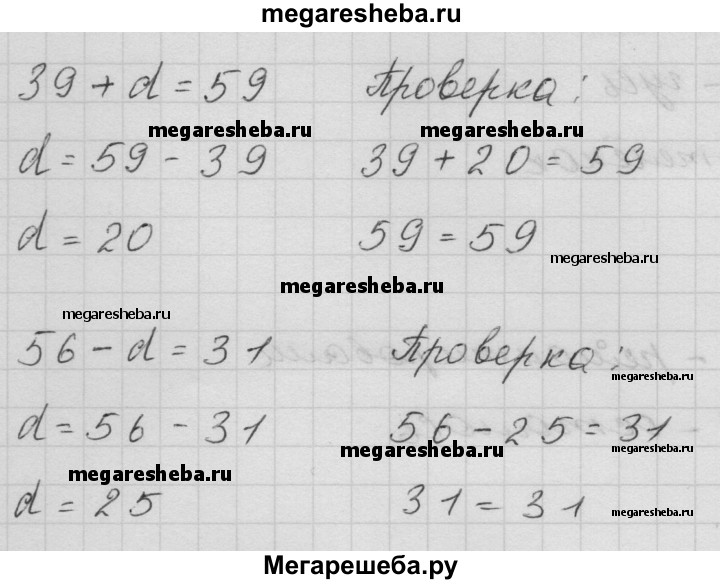 megaresheba.ru
39 + d = 59 Проверка:
megaresheba.ru megaresheba.ru
d = 59 - 39 39 + 20 = 59
d = 20 59 = 59
megaresheba.ru
megaresheba.ru
megaresheba.ru
56 - d = 31 Проверка:
megaresheba.ru
d = 56 - 31 56 - 25 = 31
megaresheba.ru megaresheba.ru
megaresheba.ru
d = 25 31 = 31
megaresheba.ru
Мегарешеба.ру